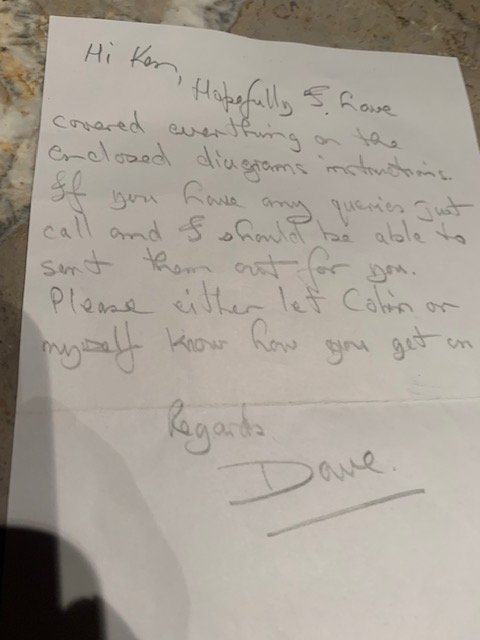 Hi Ken,
Hopefully I have
covered everthing on the
enclosed diagrams instructions.
If you have any queries just
call and I should be able to
sort them out for you.
Please either let Colin or
myself know how you get on
Regards
Dave.